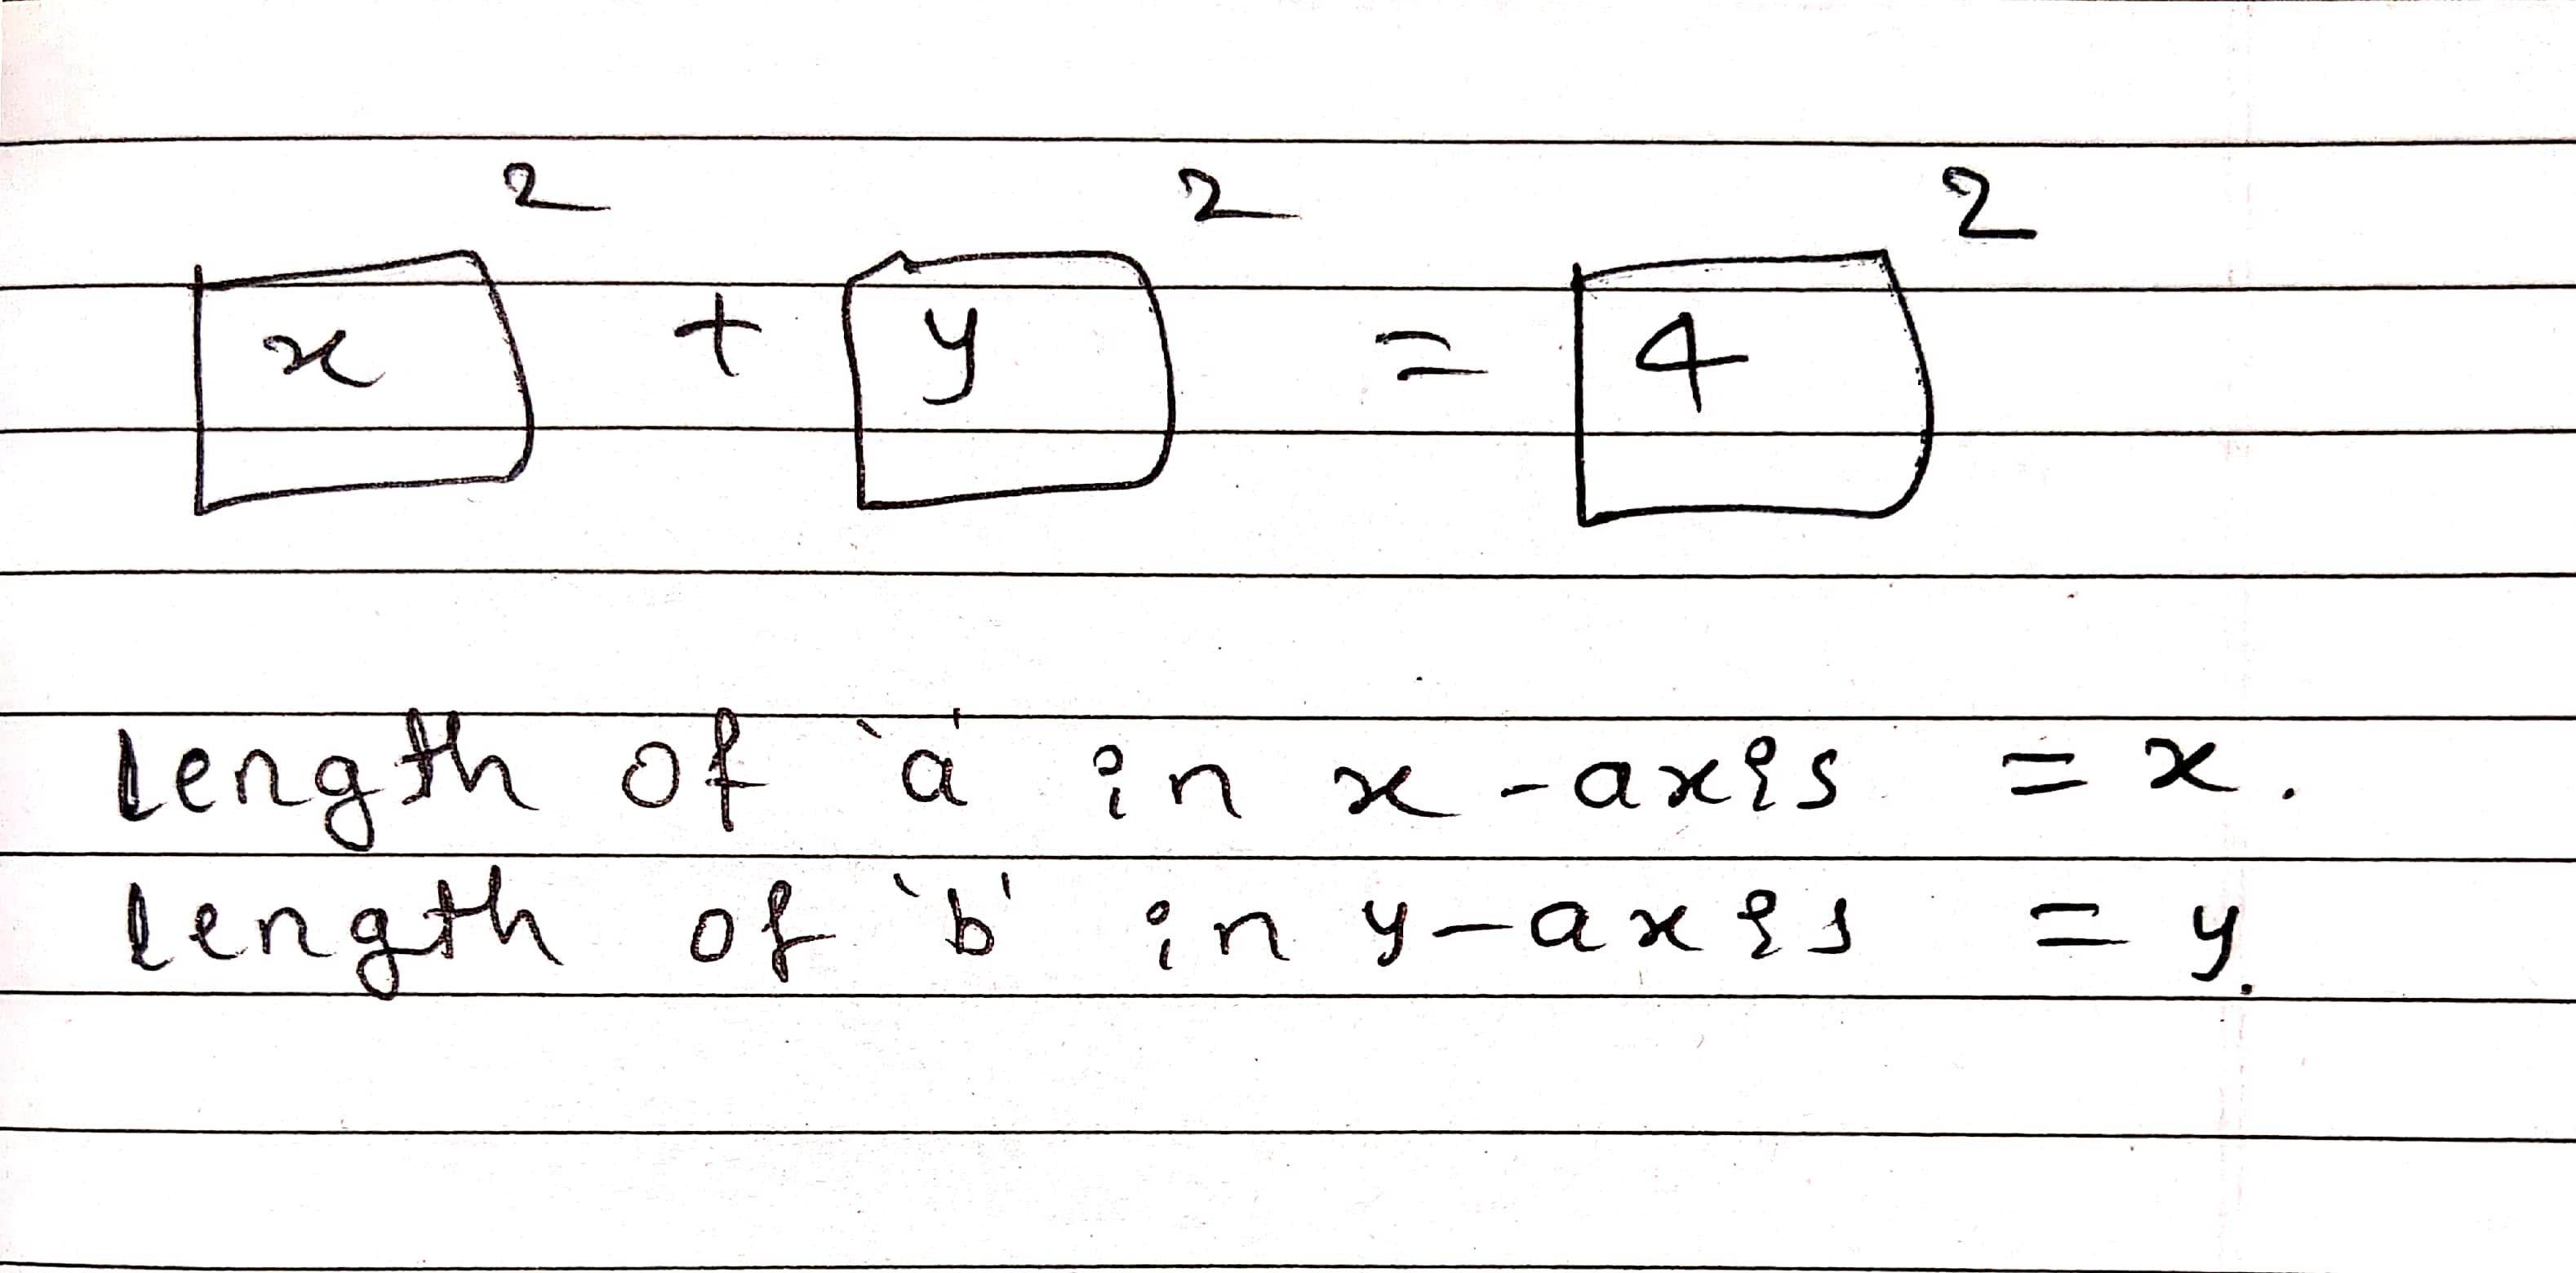 x² + y² = 4²
length of 'a' in x-axis = x.
length of 'b' in y-axis = y.